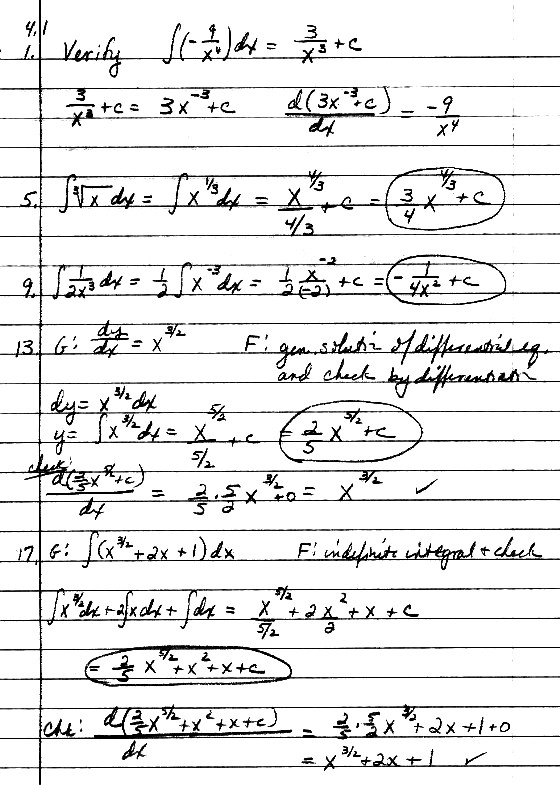 4.1
1. Verify ∫(-9/x⁴)dx = 3/x³ + c
3/x³ + c = 3x⁻³ + c    d(3x⁻³+c)/dx = -9/x⁴
5. ∫∛x dx = ∫x^(1/3) dx = x^(4/3)/(4/3) + c = 3/4 x^(4/3) + c
9. ∫1/(2x³) dx = 1/2 ∫x⁻³ dx = 1/2 x⁻²/(-2) + c = -1/(4x²) + c
13. G: dy/dx = x^(3/2)    F: gen. solution of differential eq.
and check by differentiation
dy = x^(3/2) dx
y = ∫x^(3/2) dx = x^(5/2)/(5/2) + c = 2/5 x^(5/2) + c
check:
d(2/5 x^(5/2) + c)/dx = 2/5 · 5/2 x^(3/2) + 0 = x^(3/2) ✓
17. G: ∫(x^(3/2) + 2x + 1)dx    F: indefinite integral + check
∫x^(3/2) dx + 2∫x dx + ∫dx = x^(5/2)/(5/2) + 2x²/2 + x + c
= 2/5 x^(5/2) + x² + x + c
Chk: d(2/5 x^(5/2) + x² + x + c)/dx = 2/5 · 5/2 x^(3/2) + 2x + 1 + 0
= x^(3/2) + 2x + 1 ✓